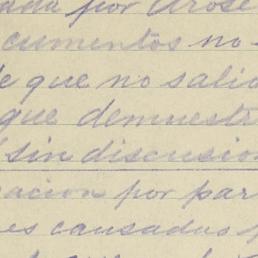 ada por Arose
cumentos no
de que no salio
que demuestr
sin discusio
nacion por par
es causados p